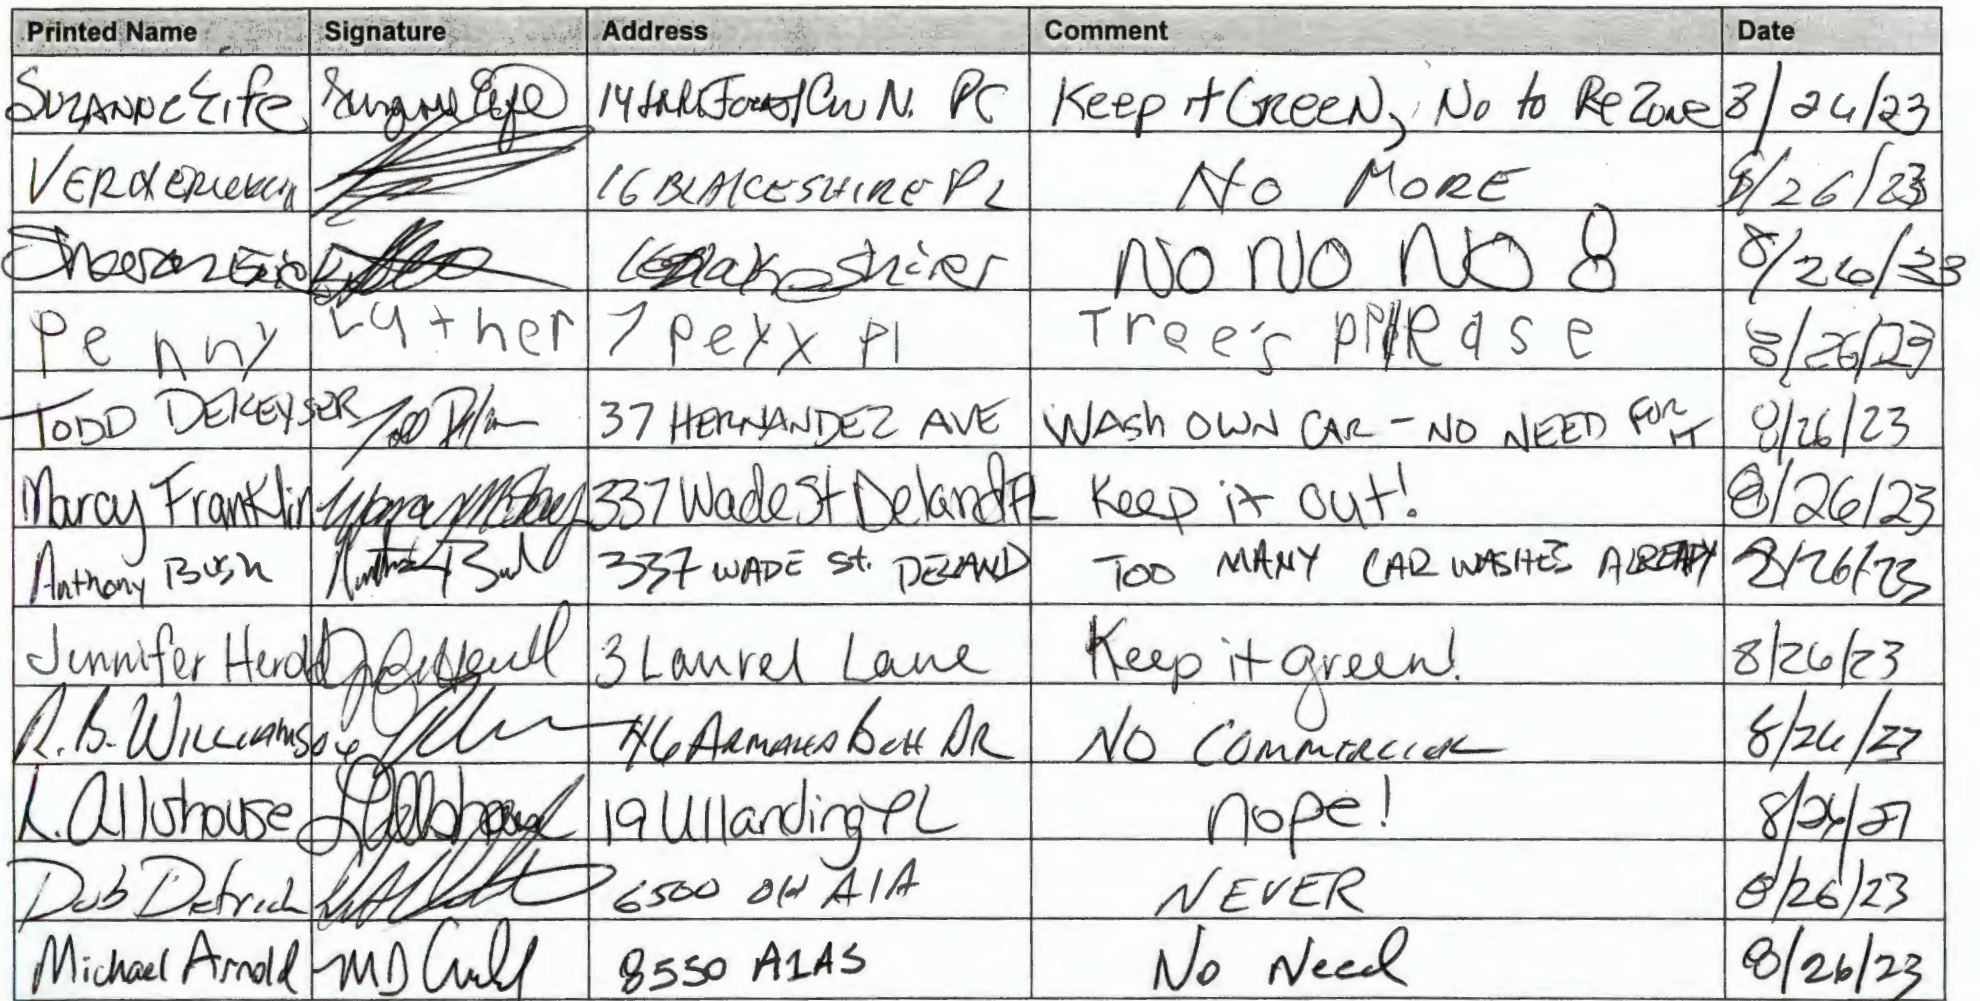 Printed Name Signature Address Comment Date
Suzanne Fife Suzanne Fife 14 Forest N. PC Keep it GREEN, No to ReZone 8/26/23
16 BLAKESHIRE PL NO MORE 8/26/23
NO NO NO 8 8/26/23
Penny Lather 7 Pl Tree's Please 8/26/23
TODD DEKEYSER 37 HERNANDEZ AVE WASH OWN CAR - NO NEED FOR IT 8/26/23
Marcy Franklin 337 Wade St Deland FL Keep it out! 8/26/23
Anthony Bush 337 WADE St. DELAND TOO MANY CAR WASHES ALREADY 8/26/23
Jennifer Herold 3 Laurel Lane Keep it green! 8/26/23
R.B. WILLIAMSON 46 BCH DR NO COMMERCIAL 8/26/23
L. Allshouse 19 Ullanding PL nope!
Deb Detrich 6500 Old A1A NEVER 8/26/23
Michael Arnold 8550 A1AS No Need 8/26/23